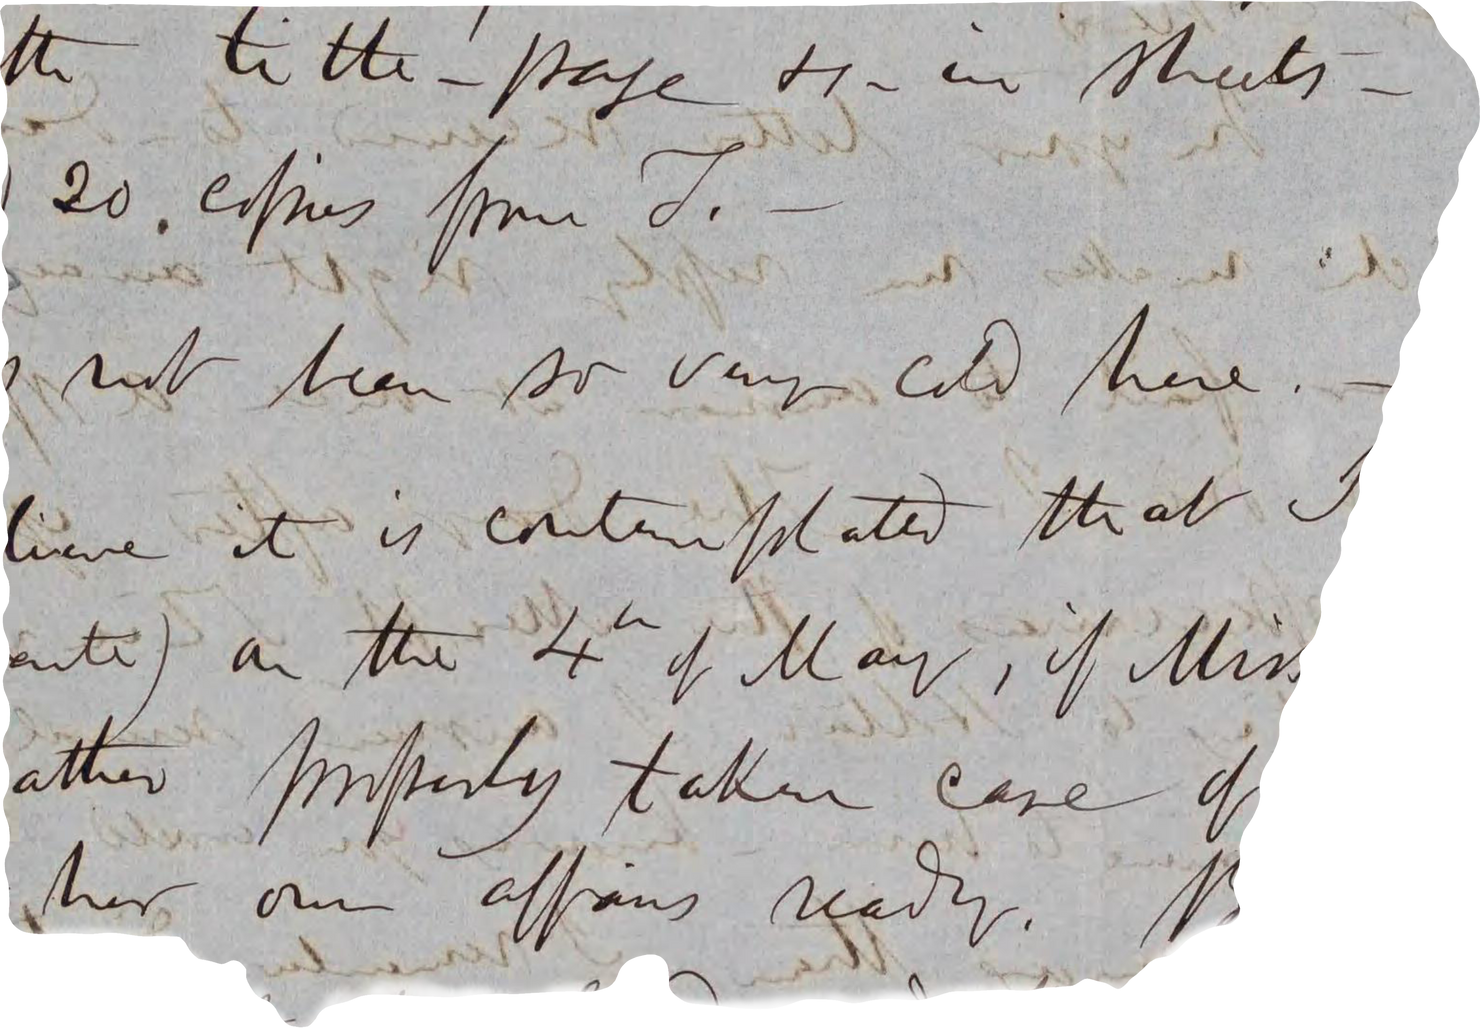 the title-page &c - in sheets -
20. copies from T. -
not been so very cold here. -
lieve it is contemplated that I
ante) on the 4th of May, if Miss
ather properly taken care of
her own affairs ready.